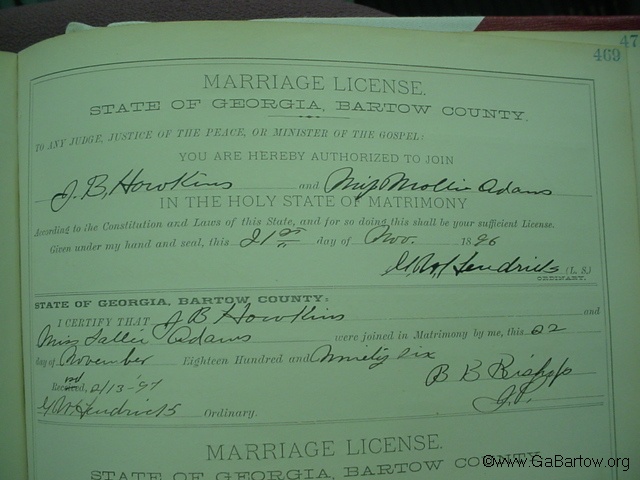 47
469
MARRIAGE LICENSE.
STATE OF GEORGIA, BARTOW COUNTY.
TO ANY JUDGE, JUSTICE OF THE PEACE, OR MINISTER OF THE GOSPEL:
YOU ARE HEREBY AUTHORIZED TO JOIN
J. B. Howkins and Miss Mollie Adams
IN THE HOLY STATE OF MATRIMONY
According to the Constitution and Laws of this State, and for so doing this shall be your sufficient License.
Given under my hand and seal, this 21st day of Nov. 1896
G. W. Hendricks (L. S.)
ORDINARY.
STATE OF GEORGIA, BARTOW COUNTY:
I CERTIFY THAT J B Howkins and
Miss Sallie Adams were joined in Matrimony by me, this 22
day of November Eighteen Hundred and Ninety six
B B Bishop
J.P.
2/13-97
G W Hendricks Ordinary.
MARRIAGE LICENSE.
STATE OF GEORGIA, BARTOW COUNTY.
©www.GaBartow.org